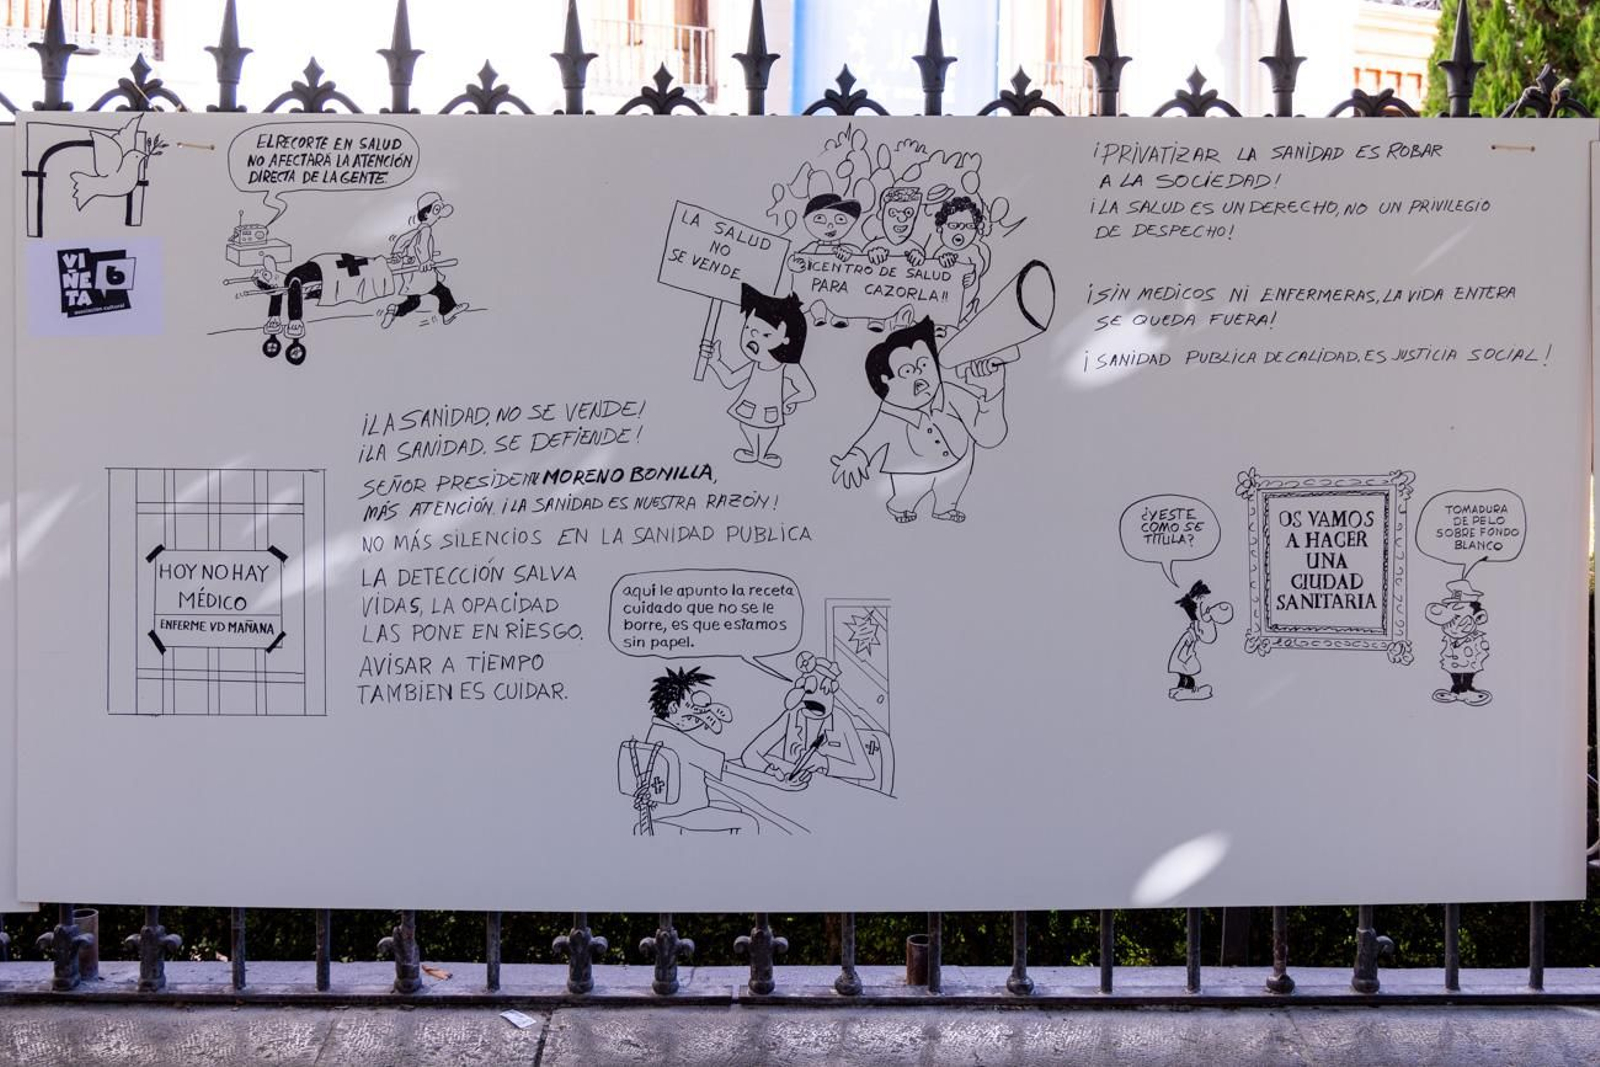 EL RECORTE EN SALUD
NO AFECTARÁ LA ATENCIÓN
DIRECTA DE LA GENTE.
VI
ÑE
TA
6
asociación cultural
LA SALUD
NO
SE VENDE
¡CENTRO DE SALUD
PARA CAZORLA!!
¡PRIVATIZAR LA SANIDAD ES ROBAR
A LA SOCIEDAD!
¡LA SALUD ES UN DERECHO, NO UN PRIVILEGIO
DE DESPECHO!
¡SIN MEDICOS NI ENFERMERAS, LA VIDA ENTERA
SE QUEDA FUERA!
¡SANIDAD PUBLICA DE CALIDAD, ES JUSTICIA SOCIAL!
¡LA SANIDAD, NO SE VENDE!
¡LA SANIDAD, SE DEFIENDE!
SEÑOR PRESIDENTE MORENO BONILLA,
MÁS ATENCIÓN. ¡LA SANIDAD ES NUESTRA RAZÓN!
NO MÁS SILENCIOS EN LA SANIDAD PUBLICA
LA DETECCIÓN SALVA
VIDAS, LA OPACIDAD
LAS PONE EN RIESGO.
AVISAR A TIEMPO
TAMBIEN ES CUIDAR.
HOY NO HAY
MÉDICO
ENFERME VD MAÑANA
aquí le apunto la receta
cuidado que no se le
borre, es que estamos
sin papel.
¿Y ESTE
CÓMO SE
TITULA?
OS VAMOS
A HACER
UNA
CIUDAD
SANITARIA
TOMADURA
DE PELO
SOBRE FONDO
BLANCO